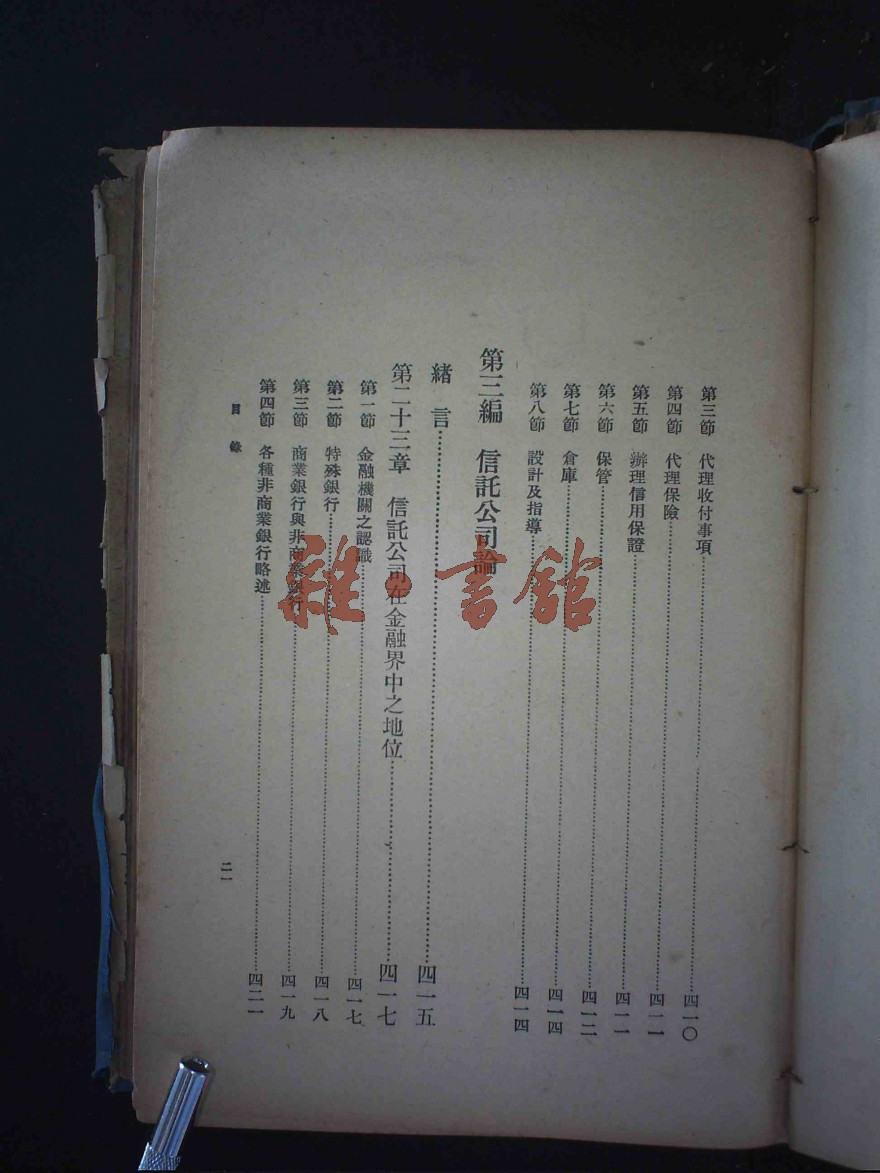 第三節　代理收付事項……四一〇
第四節　代理保險……四一一
第五節　辦理信用保證……四一一
第六節　保管……四一二
第七節　倉庫……四一四
第八節　設計及指導……四一四
第三編　信託公司論
緒言……四一五
第二十三章　信託公司在金融界中之地位……四一七
第一節　金融機關之認識……四一七
第二節　特殊銀行……四一八
第三節　商業銀行與非商業銀行……四一九
第四節　各種非商業銀行略述……四二一
目錄
二一
雜·書館